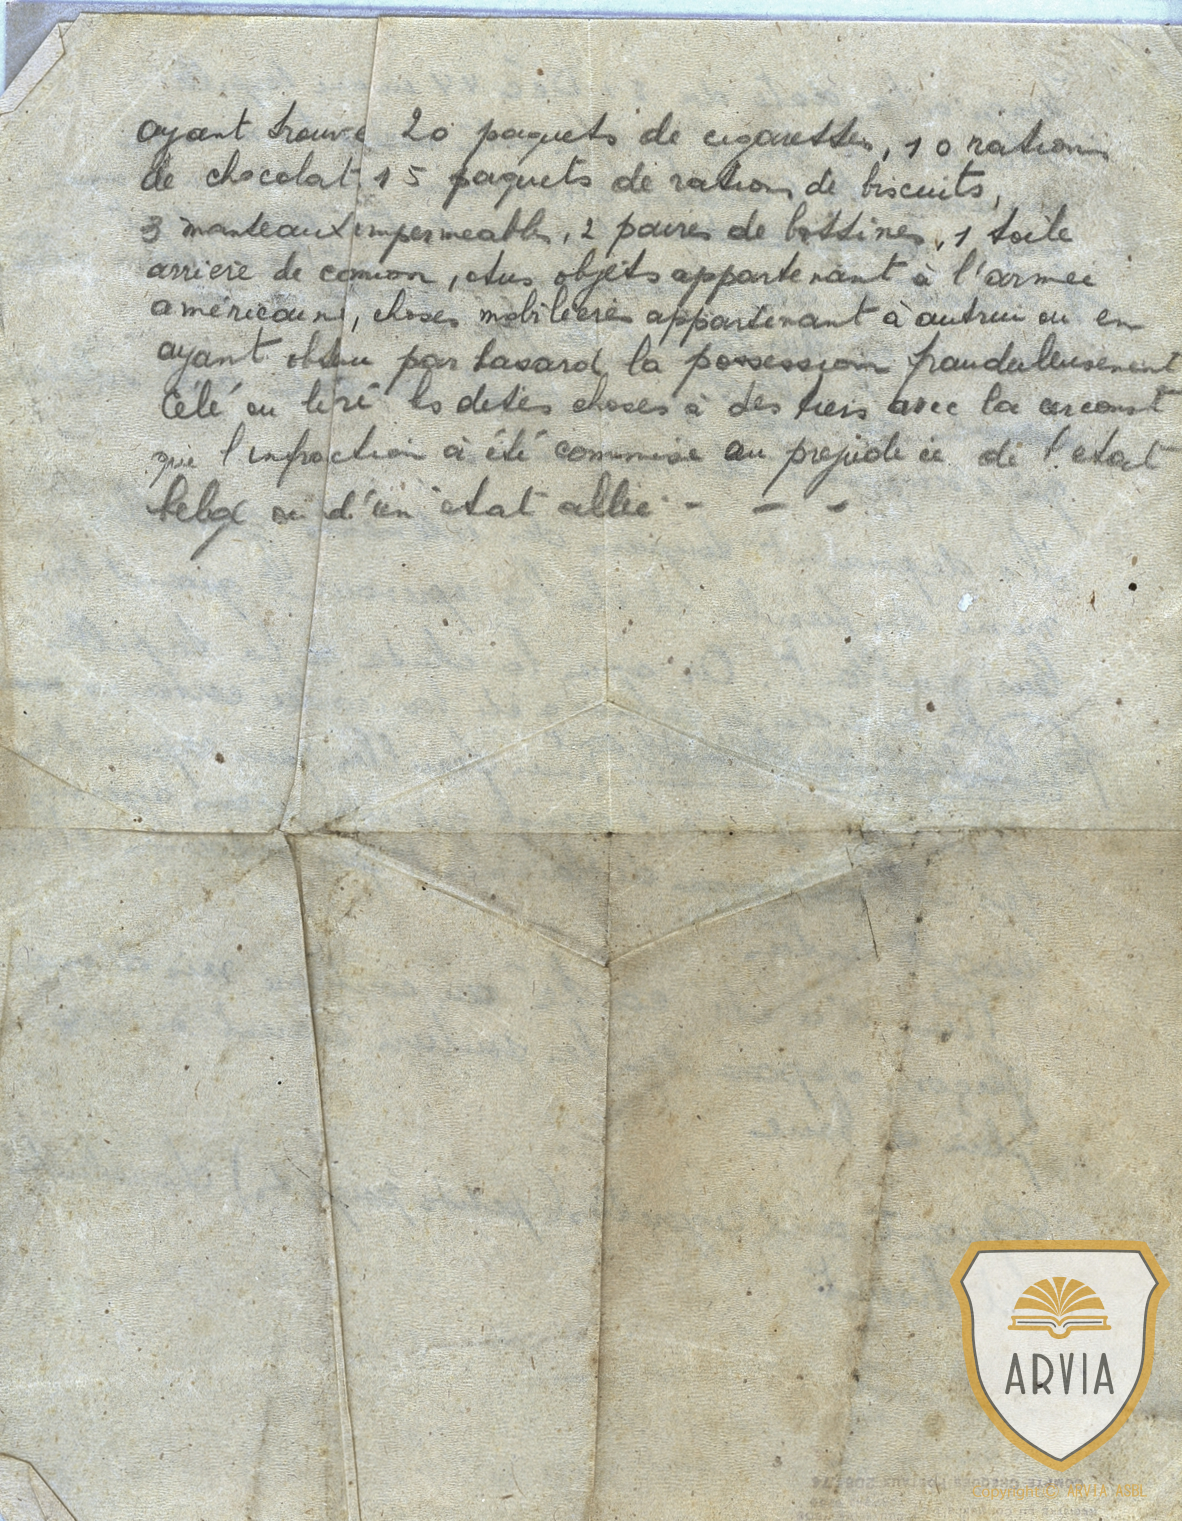 ayant trouvé 20 paquets de cigarettes, 10 rations
de chocolat 15 paquets de rations de biscuits,
3 manteaux impermeables, 2 paires de bottines, 1 toile
arriere de camion, objets appartenant à l'armée
américaine, choses mobilières appartenant à autrui ou en
ayant obtenu par hasard la possession frauduleusement
célé ou livré les dites choses à des tiers avec la circonst
que l'infraction à été commise au prejudice de l'etat
belge ou d'un état allié - - -
ARVIA
Copyright ARVIA ASBL